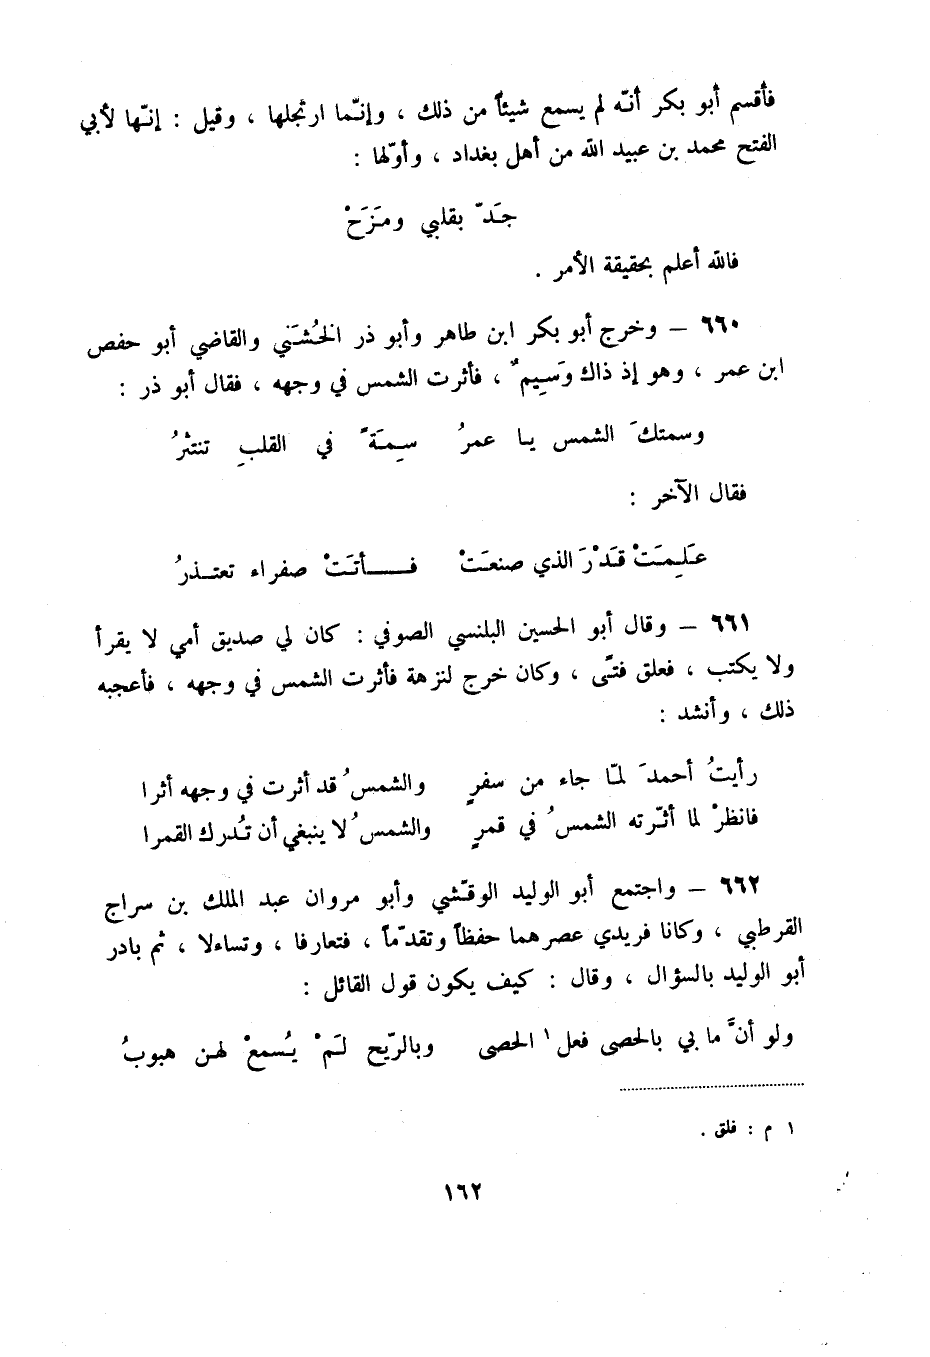 فأقسم أبو بكر أنّه لم يسمع شيئاً من ذلك ، وإنّما ارتجلها ، وقيل : إنّها لأبي
الفتح محمد بن عبيد الله من أهل بغداد ، وأوّلها :
جَدّ بقلبي ومَزَحْ
فالله أعلم بحقيقة الأمر .
٦٦٠ – وخرج أبو بكر ابن طاهر وأبو ذر الخُشَني والقاضي أبو حفص
ابن عمر ، وهو إذ ذاك وَسِيمٌ ، فأثرت الشمس في وجهه ، فقال أبو ذر :
وسمتكَ الشمس يا عمرُ سِمَةً في القلبِ تنتثرُ
فقال الآخر :
عَلِمَتْ قَدْرَ الذي صنعَتْ فـــأتَتْ صفراء تعتــذرُ
٦٦١ – وقال أبو الحسين البلنسي الصوفي : كان لي صديق أمي لا يقرأ
ولا يكتب ، فعلق فتًى ، وكان خرج لنزهة فأثرت الشمس في وجهه ، فأعجبه
ذلك ، وأنشد :
رأيتُ أحمدَ لمّا جاء من سفرٍ والشمسُ قد أثرت في وجهه أثرا
فانظرْ لما أثّرته الشمسُ في قمرٍ والشمسُ لا ينبغي أن تُدرك القمرا
٦٦٢ – واجتمع أبو الوليد الوقّشي وأبو مروان عبد الملك بن سراج
القرطبي ، وكانا فريدي عصرهما حفظاً وتقدّماً ، فتعارفا ، وتساءلا ، ثم بادر
أبو الوليد بالسؤال ، وقال : كيف يكون قول القائل :
ولو أنَّ ما بي بالحصى فعل١ الحصى وبالرّيح لَمْ يُسمعْ لهن هبوبُ
١ م : فلق .
١٦٢